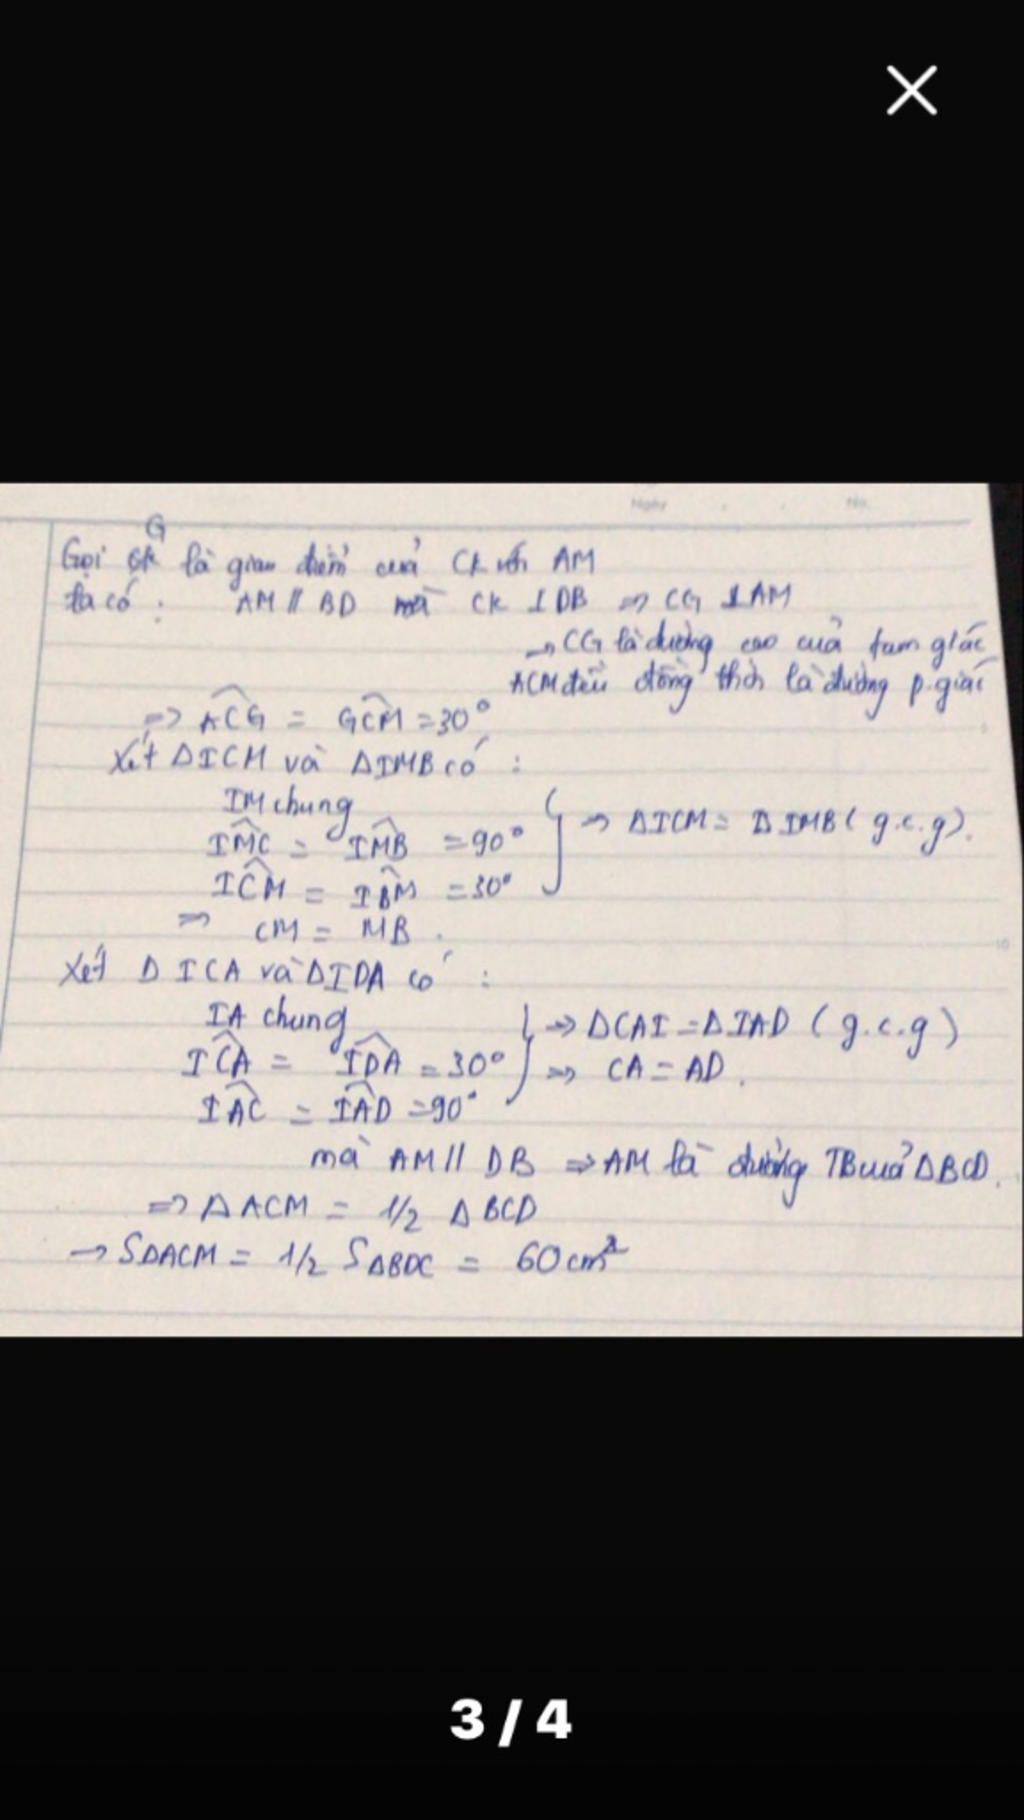 Ngày No.
G
Gọi là giao điểm của CK với AM
ta có : AM // BD mà CK ⊥ DB => CG ⊥ AM
→ CG là đường cao của tam giác
ACM đều đồng thời là đường p.giác
=> ACG = GCM = 30°
Xét ΔICM và ΔIMB có :
IM chung
IMC = IMB = 90° } => ΔICM = ΔIMB ( g.c.g ).
ICM = IBM = 30°
=> CM = MB .
Xét ΔICA và ΔIDA có :
IA chung
ICA = IDA = 30° } => ΔCAI = ΔIAD ( g.c.g )
=> CA = AD .
IAC = IAD = 90°
mà AM // DB => AM là đường TB của ΔBCD .
=> ΔACM = 1/2 ΔBCD
→ SΔACM = 1/2 SΔBDC = 60 cm²
10
3 / 4